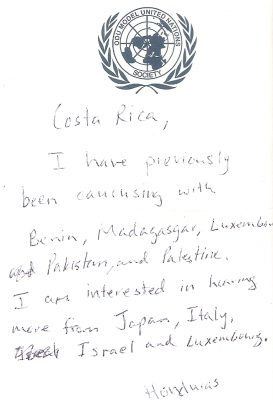 ODU MODEL UNITED NATIONS
SOCIETY
Costa Rica,
I have previously
been caucusing with
Benin, Madagasgar, Luxembou
and Pakistan, and Palestine.
I am interested in hearing
more from Japan, Italy,
Israel and Luxembourg.
Honduras